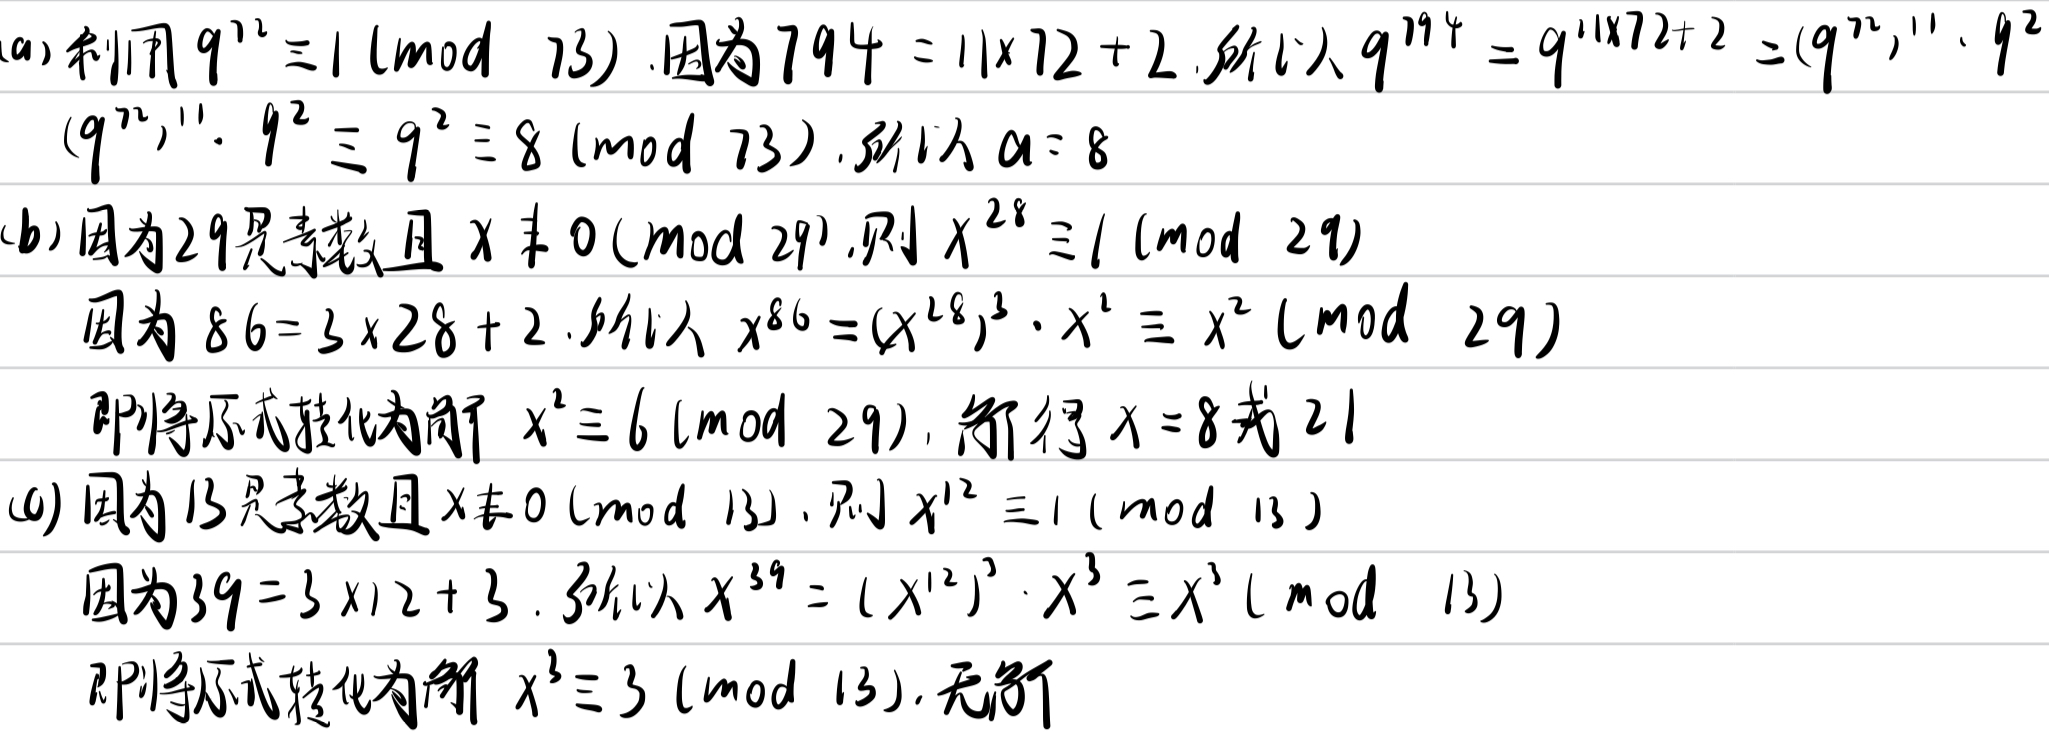 (a) 利用 9^72 ≡ 1 (mod 73). 因为 794 = 11×72 + 2. 所以 9^794 = 9^(11×72+2) = (9^72)^11 · 9^2
(9^72)^11 · 9^2 ≡ 9^2 ≡ 8 (mod 73). 所以 a = 8
(b) 因为29是素数且 x ≢ 0 (mod 29). 则 x^28 ≡ 1 (mod 29)
因为 86 = 3×28 + 2. 所以 x^86 = (x^28)^3 · x^2 ≡ x^2 (mod 29)
即将原式转化为解 x^2 ≡ 6 (mod 29), 解得 x = 8 或 21
(c) 因为13是素数且 x ≢ 0 (mod 13). 则 x^12 ≡ 1 (mod 13)
因为39 = 3×12 + 3. 所以 x^39 = (x^12)^3 · x^3 ≡ x^3 (mod 13)
即将原式转化为解 x^3 ≡ 3 (mod 13). 无解